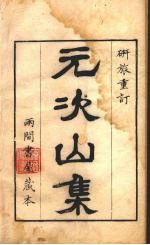 研旅重訂
元次山集
兩閒書屋藏本